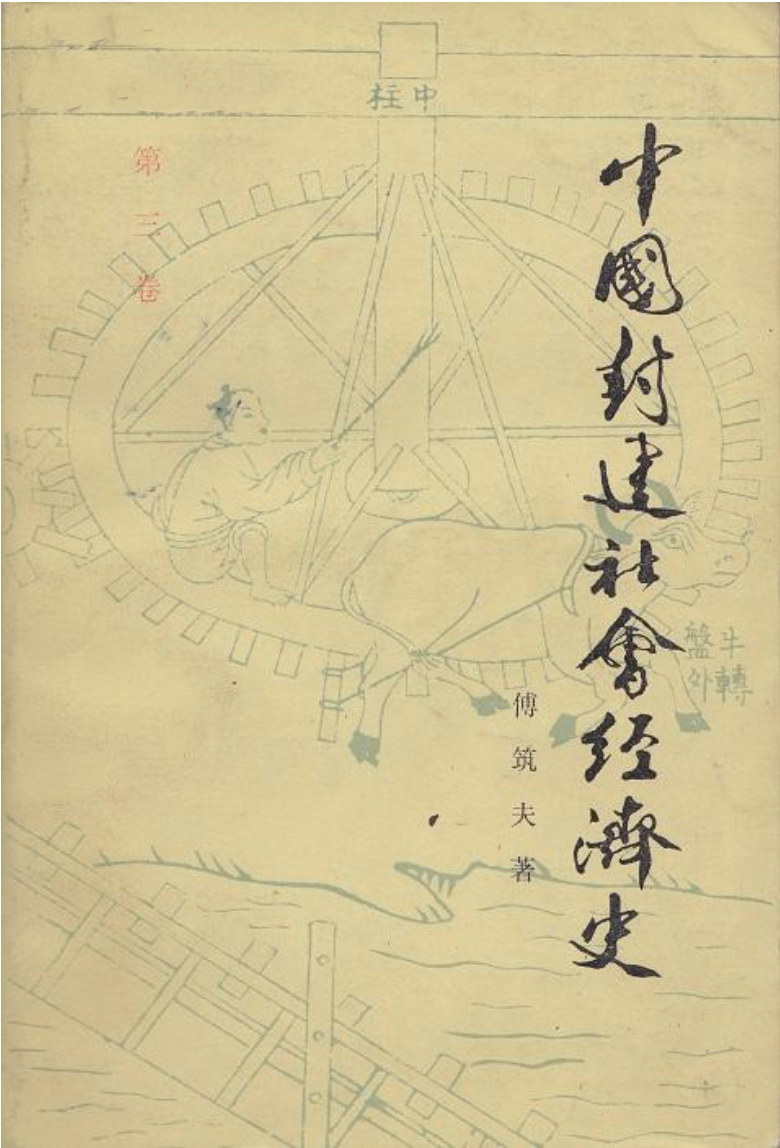 中國封建社會经濟史
傅筑夫著
第三卷
中柱
牛轉
盤外